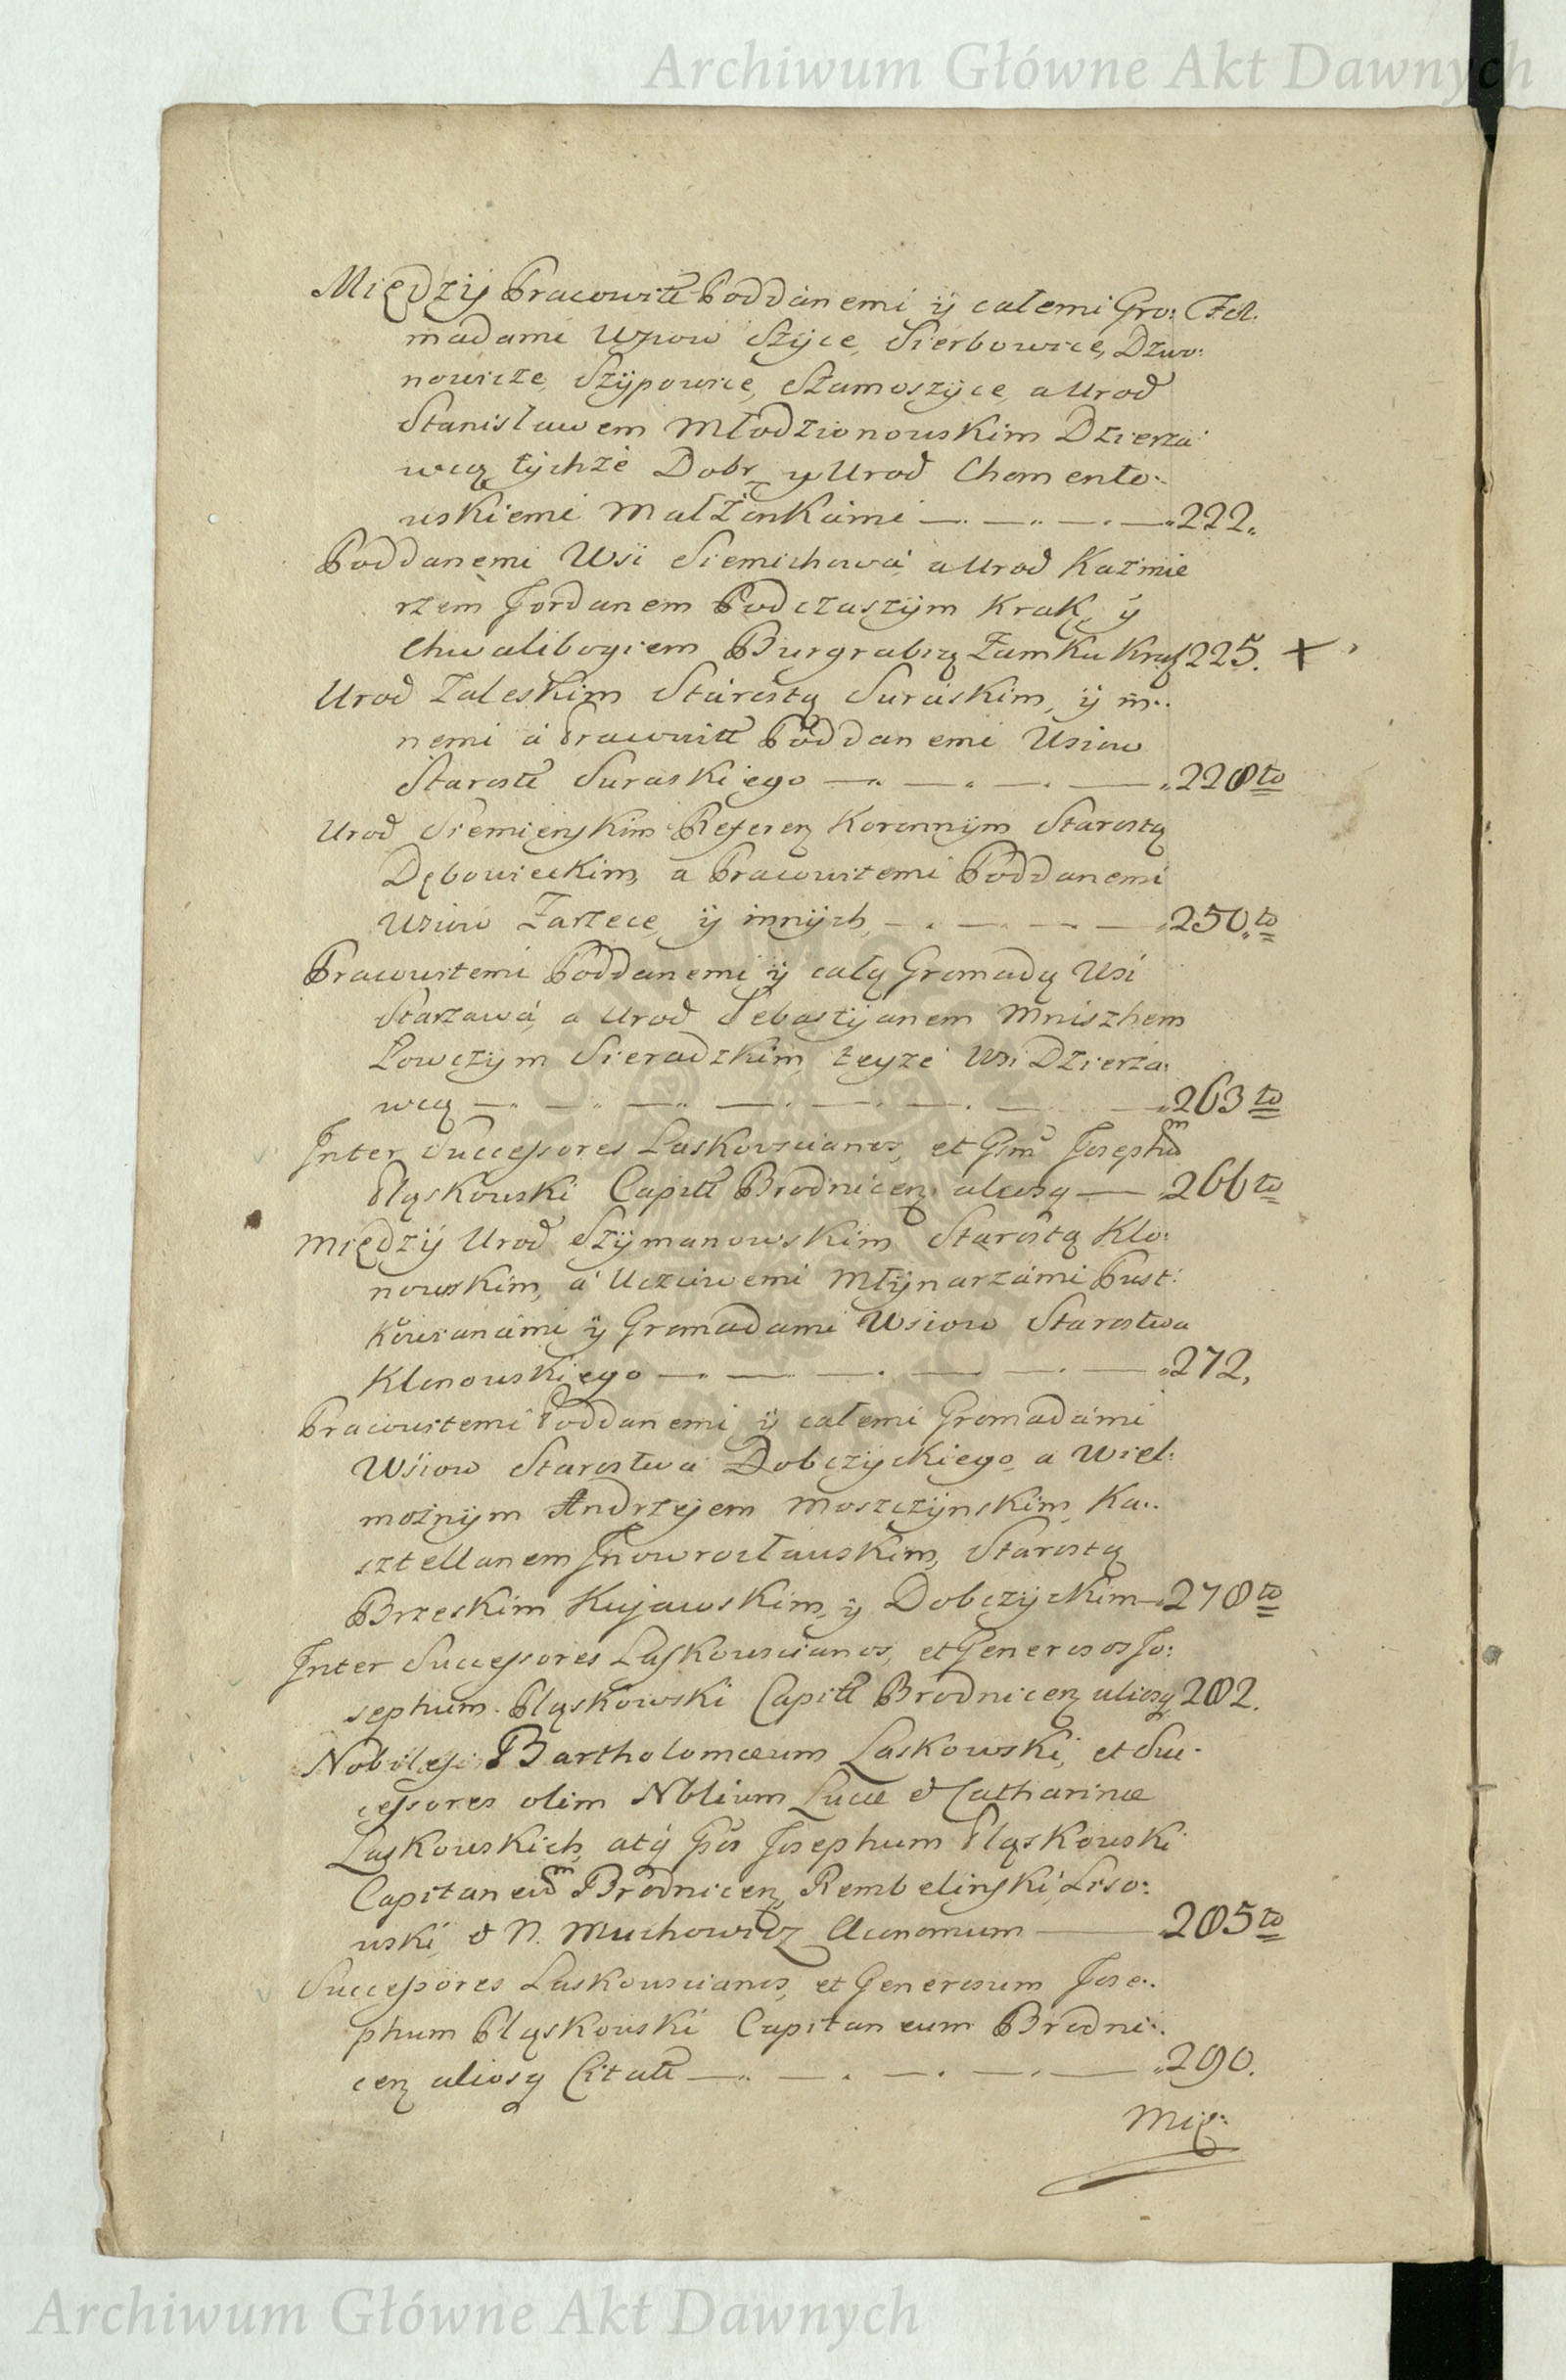 Archiwum Główne Akt Dawnych
Między Pracowite Poddanemi ÿ całemi Gro: Fol.
madami Wsiow Szÿce, Sierbowice, Dzwo:
nowicze, Szÿpowice, Stamoszÿce, a Urod
Stanisławem Młodzionowskim Dzierża
wcą tÿchże Dobr y Urod Chomento:
wskiemi Małżonkami 222.
Poddanemi Wsi Siemichowa, a Urod Kaźmie
rzem Jordanem Podczaszÿm Krak ÿ
Chwalibogiem Burgrabią Zamku Krak 225. +
Urod Zaleskim Starostą Suraskim, ÿ in:
nemi a Pracowite Poddanemi Wsiow
Staroste Suraskiego 228to
Urod Siemieńskim Referen Koronnÿm Starostą
Dębowieckim, a Pracowitemi Poddanemi
Wsiow Zarzece, ÿ innÿch, 250.to
Pracowitemi Poddanemi ÿ całą Gromadą Wsi
Starzawa, a Urod Sebastÿanem Mniszhem
Łowczÿm Sieradzkim, teyże Wsi Dzierża:
wcą 263to
Inter Successores Laskowscianos, et Gsm Josephum
Pląskowski Capitt Brodnicen aliosq 266to
Międzÿ Urod Szÿmanowskim Starostą Klo:
nowskim, a Uczciwemi Młÿnarzami Pust:
kowianami ÿ Gromadami Wsiow Starostwa
Klonowskiego 272.
Pracowitemi Poddanemi ÿ całemi Gromadami
Wsiow Starostwa Dobczÿckiego, a Wiel:
możnÿm Andrzejem Moszczÿnskim, Ka:
sztellanem Jnowrocławskim, Starostą
Brzeskim Kujawskim, ÿ Dobczÿckim 278to
Inter Successores Laskowscianos, et Generosos Jo:
sephum Pląskowski Capitt Brodnicen aliosq 282.
Nobiles Bartholomæum Laskowski, et Suc:
cessores olim Nblium Lucæ & Catharinæ
Laskowskich, atq Gsos Josephum Pląskowski
Capitaneum Brodnicen, Rembelinski, Liso:
wski, & N. Muchowicz Œconomum 285to
Successores Laskowscianos, et Generosum Jose:
phum Pląskowski Capitaneum Brodni:
cen aliosq Citatt 290.
Mię:
Archiwum Główne Akt Dawnych